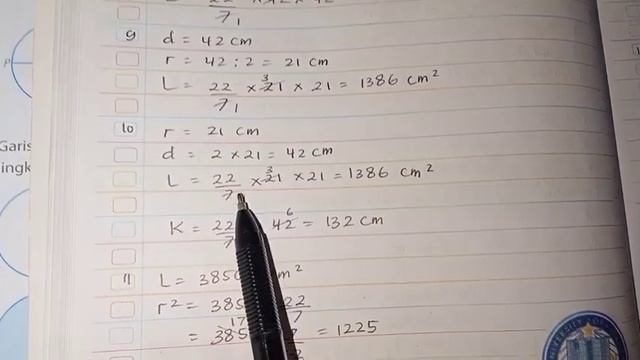 9 d = 42 cm
r = 42 : 2 = 21 cm
L = 22/7 × 21 × 21 = 1386 cm²
10 r = 21 cm
d = 2 × 21 = 42 cm
L = 22/7 × 21 × 21 = 1386 cm²
K = 22/7 42 = 132 cm
11 L = 385 m²
r² = 385 22/7
= 385 = 1225
Garis